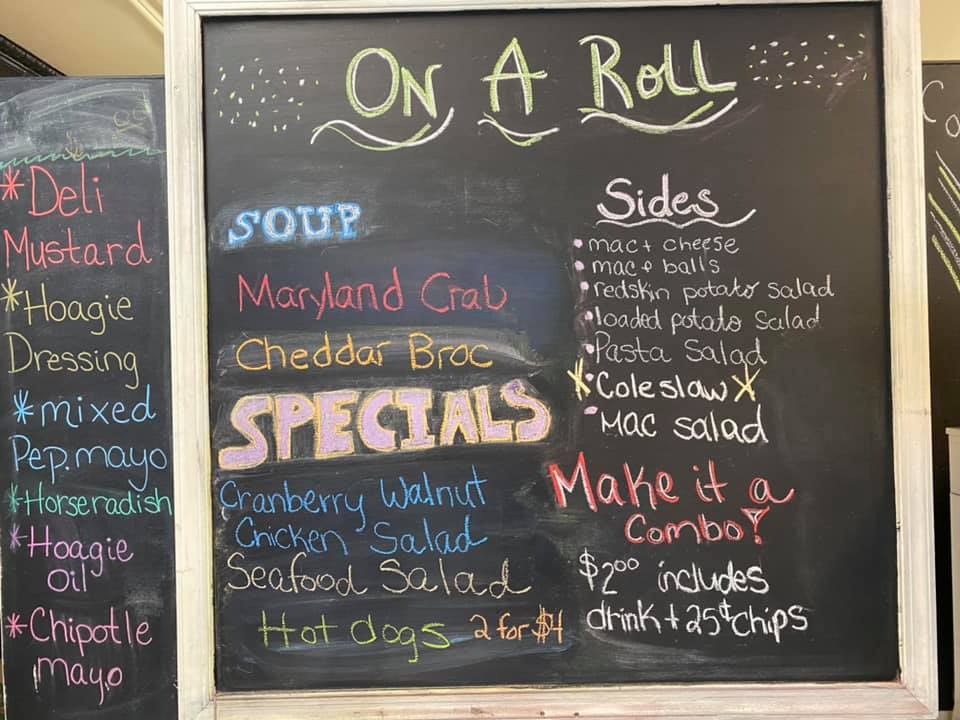 *Deli
Mustard
*Hoagie
Dressing
*mixed
Pep. mayo
*Horseradish
*Hoagie
Oil
*Chipotle
mayo
On A Roll
SOUP
Maryland Crab
Cheddar Broc
SPECIALS
Cranberry Walnut
Chicken Salad
Seafood Salad
Hot dogs 2 for $4
Sides
• mac + cheese
• mac + balls
• redskin potato salad
• loaded potato salad
• Pasta Salad
• Coleslaw
• Mac salad
Make it a
Combo!
$2.00 includes
drink + 25¢ chips
Co